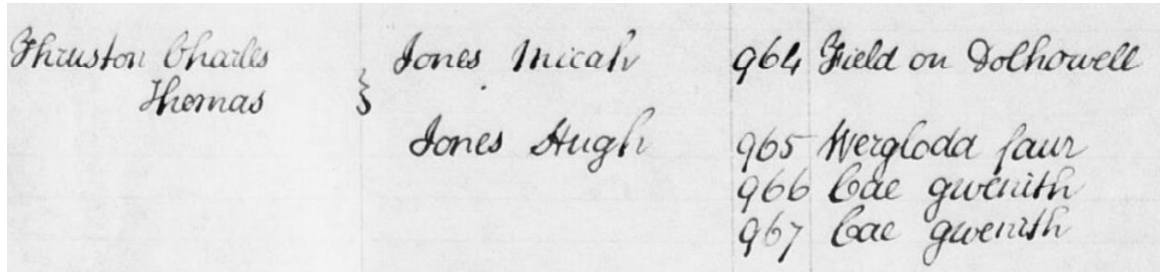 Thruston Charles Jones Micah 964 Field on Dolhowell
Thomas }
Jones Hugh 965 Werglodd faur
966 Cae gwenith
967 Cae gwenith